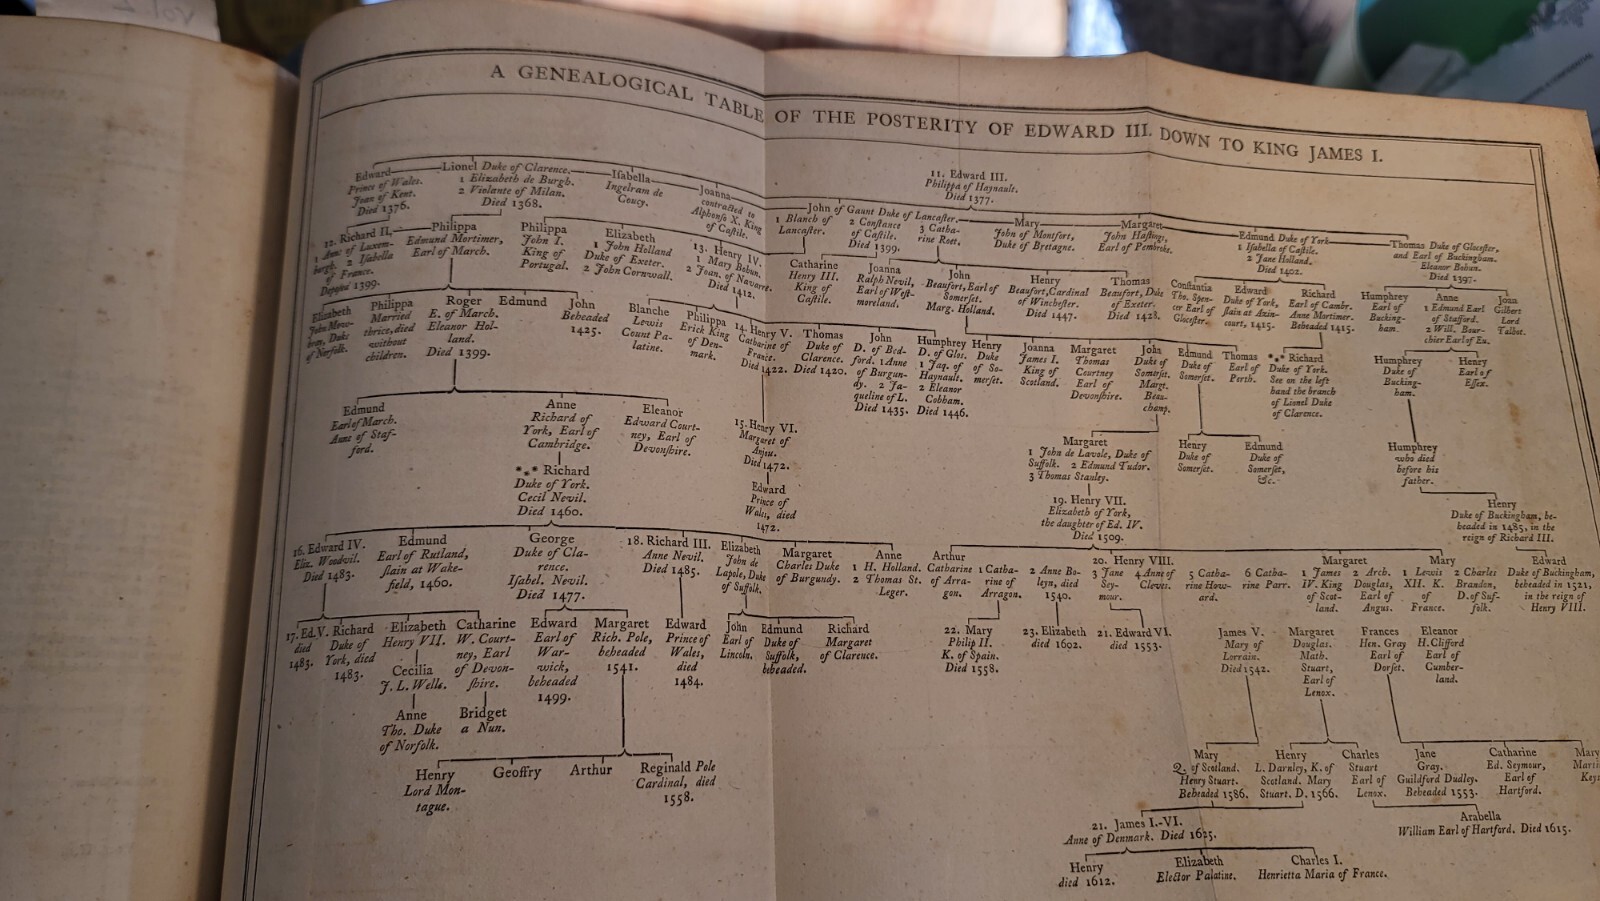 Vol. 1
A GENEALOGICAL TABLE OF THE POSTERITY OF EDWARD III. DOWN TO KING JAMES I.
11. Edward III.
Philippa of Haynault.
Died 1377.
Edward
Prince of Wales.
Joan of Kent.
Died 1376.
Lionel Duke of Clarence.
1 Elizabeth de Burgh.
2 Violante of Milan.
Died 1368.
Isabella
Ingelram de
Coucy.
Joanna
contracted to
Alphonso X. King
of Castile.
John of Gaunt Duke of Lancaster.
1 Blanch of
Lancaster.
2 Constance
of Castile.
Died 1399.
3 Catha-
rine Roet.
Mary
John of Montfort,
Duke of Bretagne.
Margaret
John Hastings,
Earl of Pembroke.
Edmund Duke of York
1 Isabella of Castile.
2 Jane Holland.
Died 1402.
Thomas Duke of Glocester,
and Earl of Buckingham.
Eleanor Bohun.
Died 1397.
12. Richard II.
1 Ann: of Luxem-
burgh. 2 Isabella
of France.
Deposed 1399.
Philippa
Edmund Mortimer,
Earl of March.
Philippa
John I.
King of
Portugal.
Elizabeth
1 John Holland
Duke of Exeter.
2 John Cornwall.
13. Henry IV.
1 Mary Bohun.
2 Joan. of Navarre.
Died 1412.
Catharine
Henry III.
King of
Castile.
Joanna
Ralph Nevil,
Earl of West-
moreland.
John
Beaufort, Earl of
Somerset.
Marg. Holland.
Henry
Beaufort, Cardinal
of Winchester.
Died 1447.
Thomas
Beaufort, Duke
of Exeter.
Died 1428.
Constantia
Tho. Spen-
cer Earl of
Glocester.
Edward
Duke of York,
slain at Azin-
court, 1415.
Richard
Earl of Cambr.
Anne Mortimer.
Beheaded 1415.
Humphrey
Earl of
Bucking-
ham.
Anne
1 Edmund Earl
of Stafford.
2 Will. Bour-
chier Earl of Eu.
Joan
Gilbert
Lord
Talbot.
Elizabeth
John Mow-
bray, Duke
of Norfolk.
Philippa
Married
thrice, died
without
children.
Roger
E. of March.
Eleanor Hol-
land.
Died 1399.
Edmund
John
Beheaded
1425.
Blanche
Lewis
Count Pa-
latine.
Philippa
Erick King
of Den-
mark.
14. Henry V.
Catharine of
France.
Died 1422.
Thomas
Duke of
Clarence.
Died 1420.
John
D. of Bed-
ford. 1 Anne
of Burgun-
dy. 2 Ja-
queline of L.
Died 1435.
Humphrey
D. of Glos.
1 Jaq. of
Haynault.
2 Eleanor
Cobham.
Died 1446.
Henry
Duke
of So-
merset.
Joanna
James I.
King of
Scotland.
Margaret
Thomas
Courtney
Earl of
Devonshire.
John
Duke of
Somerset.
Margt.
Beau-
champ.
Edmund
Duke of
Somerset.
Thomas
Earl of
Perth.
*** Richard
Duke of York.
See on the left
hand the branch
of Lionel Duke
of Clarence.
Humphrey
Duke of
Bucking-
ham.
Henry
Earl of
Essex.
Edmund
Earl of March.
Anne of Staf-
ford.
Anne
Richard of
York, Earl of
Cambridge.
Eleanor
Edward Court-
ney, Earl of
Devonshire.
15. Henry VI.
Margaret of
Anjou.
Died 1472.
Margaret
1 John de Lapole, Duke of
Suffolk. 2 Edmund Tudor.
3 Thomas Stanley.
Henry
Duke of
Somerset.
Edmund
Duke of
Somerset,
&c.
Humphrey
who died
before his
father.
*** Richard
Duke of York.
Cecil Nevil.
Died 1460.
Edward
Prince of
Wales, died
1472.
19. Henry VII.
Elizabeth of York,
the daughter of Ed. IV.
Died 1509.
Henry
Duke of Buckingham, be-
headed in 1485, in the
reign of Richard III.
16. Edward IV.
Eliz. Woodvil.
Died 1483.
Edmund
Earl of Rutland,
slain at Wake-
field, 1460.
George
Duke of Cla-
rence.
Isabel. Nevil.
Died 1477.
18. Richard III.
Anne Nevil.
Died 1485.
Elizabeth
John de
Lapole, Duke
of Suffolk.
Margaret
Charles Duke
of Burgundy.
Anne
1 H. Holland.
2 Thomas St.
Leger.
Arthur
Catharine
of Arra-
gon.
20. Henry VIII.
1 Catha-
rine of
Arragon.
2 Anne Bo-
leyn, died
1540.
3 Jane
Sey-
mour.
4 Anne of
Cleves.
5 Catha-
rine How-
ard.
6 Catha-
rine Parr.
Margaret
1 James
IV. King
of Scot-
land.
2 Arch.
Douglas,
Earl of
Angus.
Mary
1 Lewis
XII. K.
of
France.
2 Charles
Brandon,
D. of Suf-
folk.
Edward
Duke of Buckingham,
beheaded in 1521,
in the reign of
Henry VIII.
17. Ed. V.
died
1483.
Richard
Duke of
York, died
1483.
Elizabeth
Henry VII.
Catharine
W. Court-
ney, Earl
of Devon-
shire.
Edward
Earl of
War-
wick,
beheaded
1499.
Margaret
Rich. Pole,
beheaded
1541.
Edward
Prince of
Wales,
died
1484.
John
Earl of
Lincoln.
Edmund
Duke of
Suffolk,
beheaded.
Richard
Margaret
of Clarence.
22. Mary
Philip II.
K. of Spain.
Died 1558.
23. Elizabeth
died 1602.
21. Edward VI.
died 1553.
James V.
Mary of
Lorrain.
Died 1542.
Margaret
Douglas.
Math.
Stuart,
Earl of
Lenox.
Frances
Hen. Gray
Earl of
Dorset.
Eleanor
H. Clifford
Earl of
Cumber-
land.
Cecilia
J. L. Wells.
Anne
Tho. Duke
of Norfolk.
Bridget
a Nun.
Henry
Lord Mon-
tague.
Geoffry
Arthur
Reginald Pole
Cardinal, died
1558.
Mary
Q. of Scotland.
Henry Stuart.
Beheaded 1586.
Henry
L. Darnley, K. of
Scotland. Mary
Stuart. D. 1566.
Charles
Stuart
Earl of
Lenox.
Jane
Gray.
Guildford Dudley.
Beheaded 1553.
Catharine
Ed. Seymour,
Earl of
Hartford.
Mary
21. James I.-VI.
Anne of Denmark. Died 1625.
Arabella
William Earl of Hartford. Died 1615.
Henry
died 1612.
Elizabeth
Elector Palatine.
Charles I.
Henrietta Maria of France.